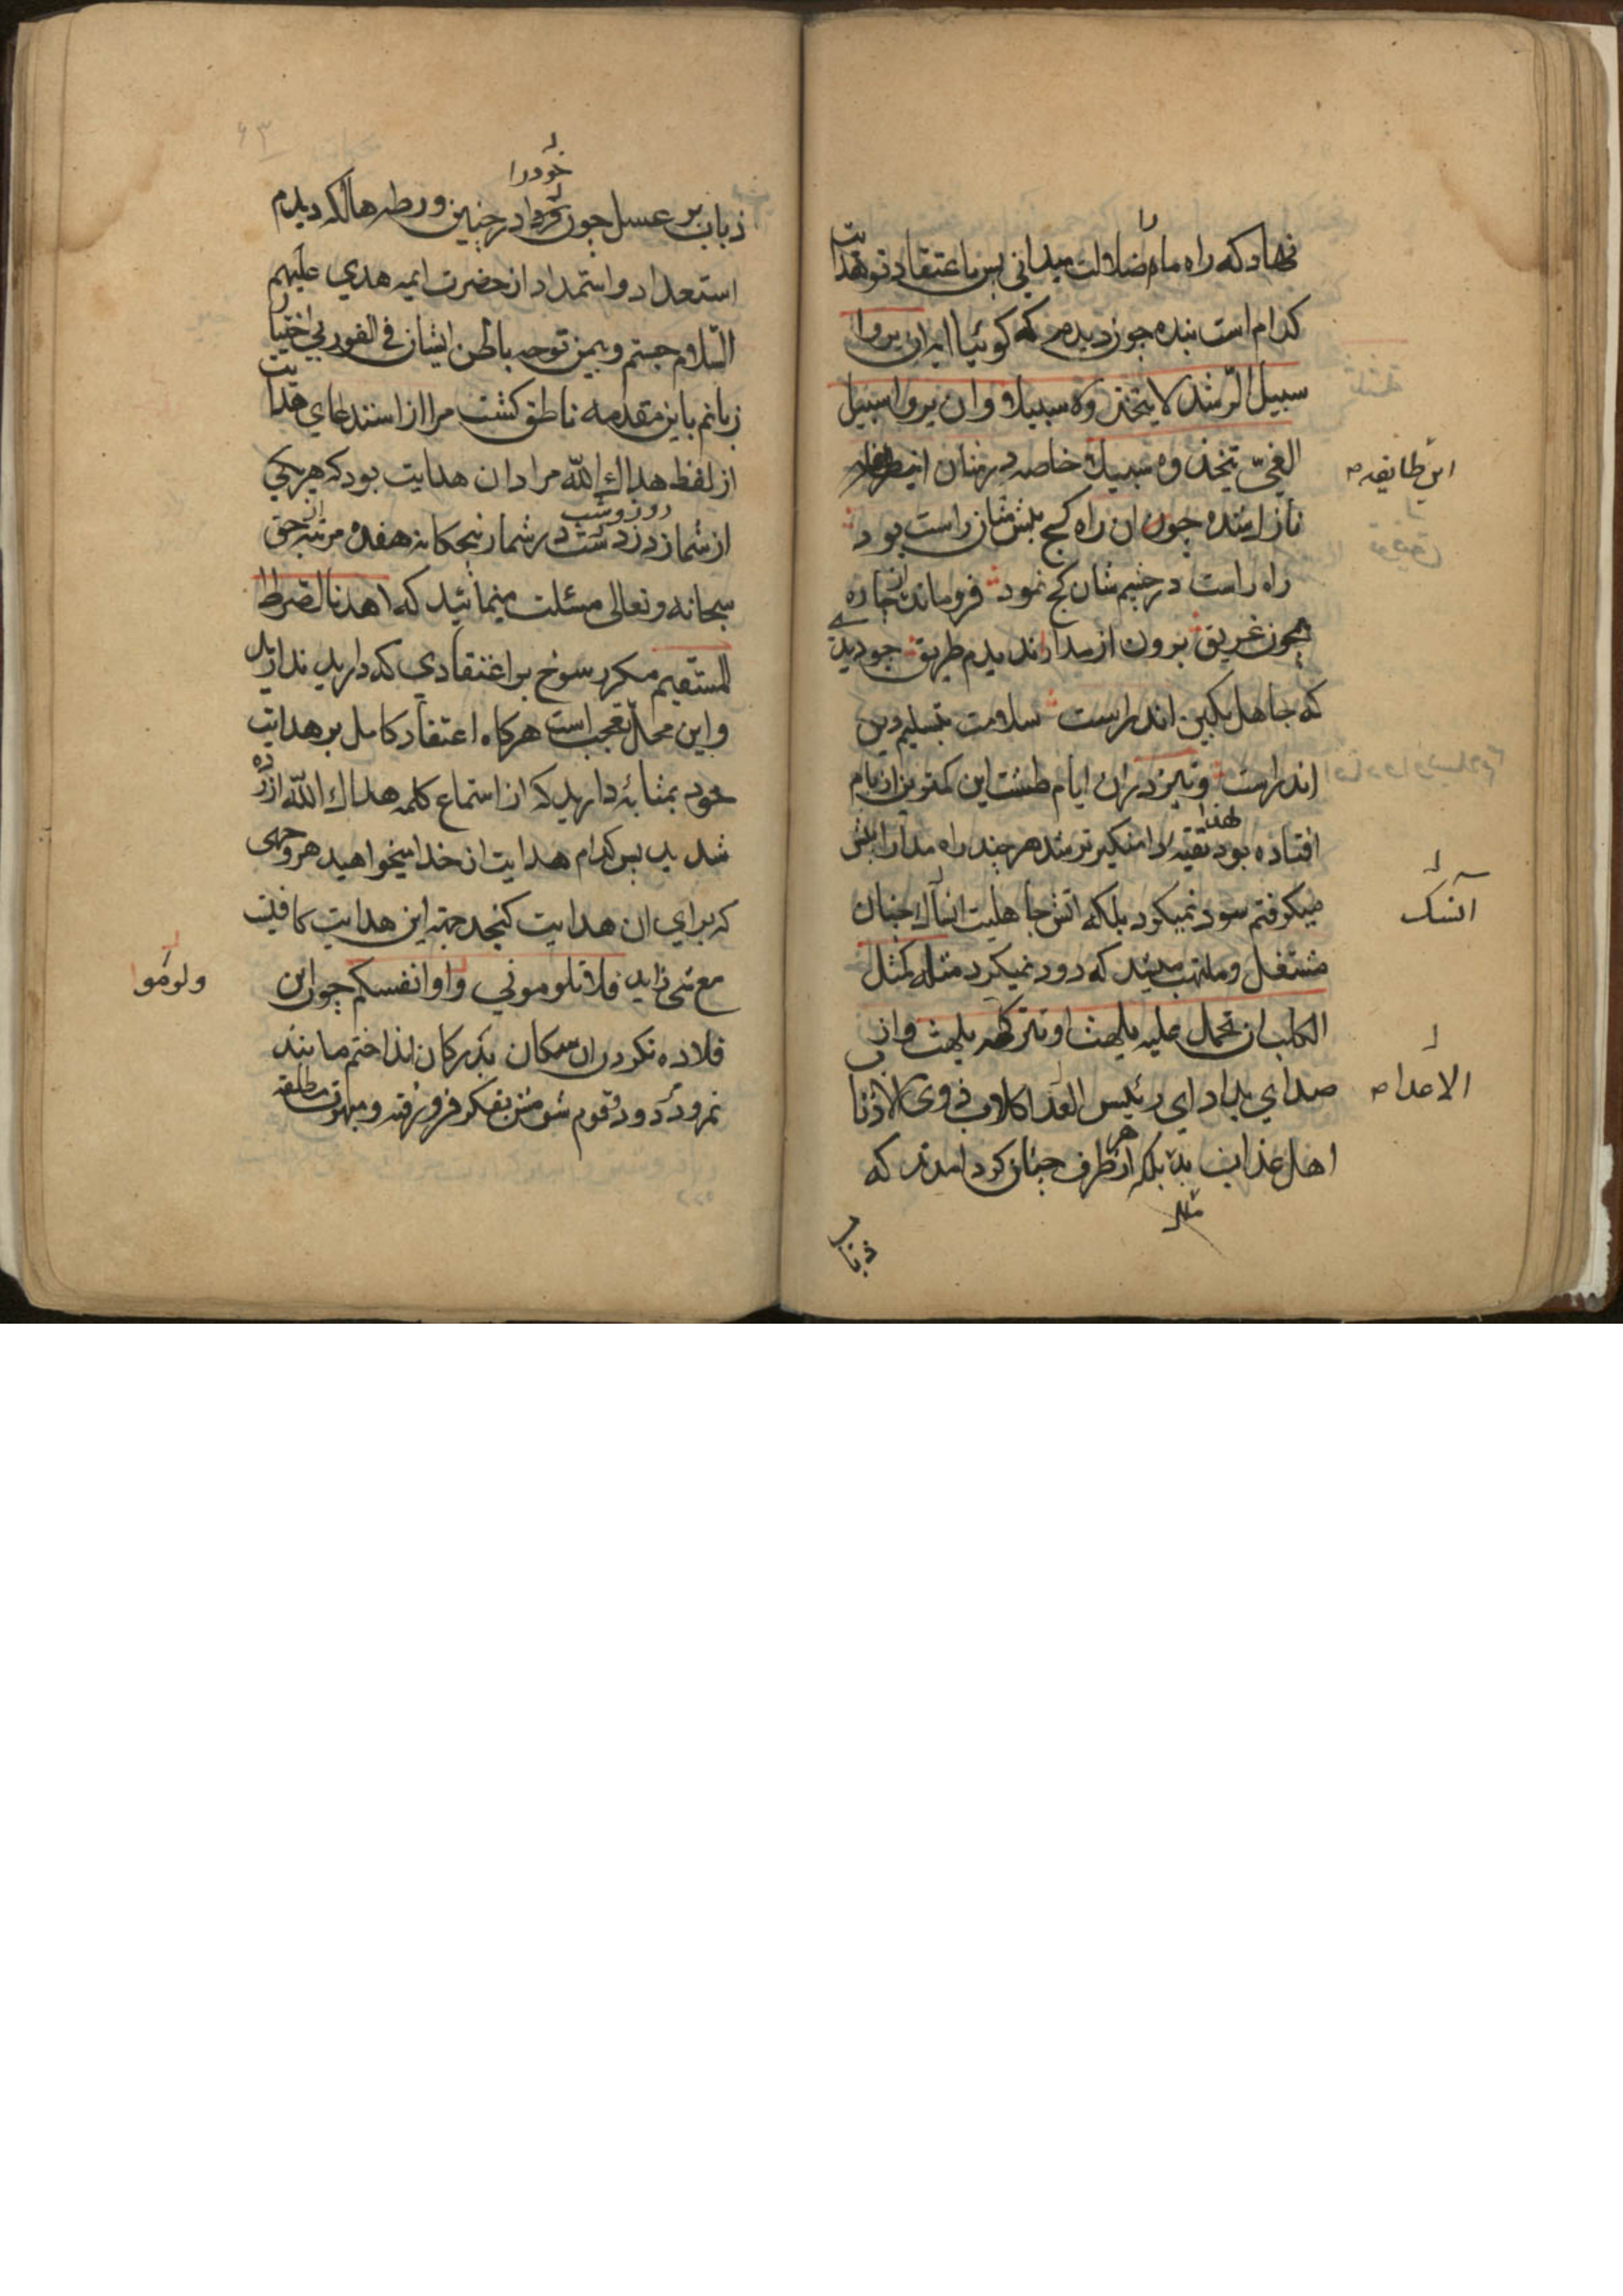 نهاد که راه ما را ضلالت میدانی پس باعتقاد تو هدایت
کدام است بنده چون دیدم که کوئیا ان یروا
سبیل الرشد لا یتخذوه سبیلا و ان یروا سبیل
الغیّ یتخذوه سبیلا خاصه در شان
این طایفه
نازل شده چون ان راه کج پیش شان راست بود
راه راست در چشم شان کج نمود فرومانده از چاره
همچون غریق برون از مدارا ندیدم طریق چو دیدی
که جاهل بکین اندر است سلامت بتسلیم دین
اندر است و نیز دران ایام طشت این کمترین از بام
افتاده بود لهذا تقیه دامنکیر تر شد هر چند راه مدارا پیش
میکرفتم سود نمیکرد بلکه اتش جاهلیت چنان
آتشک
مشتعل و ملتهب که دود نمیکرد مثله کمثل
الکلب ان تحمل علیه یلهث او تترکه یلهث و از بی
صدای بلد ای رئیس
الاعدا
اهل عذاب بلکه از هر طرف چنان کرد امدند که
ذباب
ذباب بر عسل چون خود را در چنین ورطه هالکه دیدم
استعداد و استمداد از حضرت ایمه هدی علیهم
السلام جستم و بیمن توجه باطن ایشان فی الفور بی اختیار
زبانم باین مقدمه ناطق کشت مرا از استدعای هدایت
از لفظ هداك الله مراد ان هدایت بود که هر یکی
از شما در روز و شب در شمار پنجکانه هفده مرتبه از حق
سبحانه و تعالی مسئلت مینمائید که اهدنا الصراط
المستقیم مکر رسوخ بر اعتقادی که دارید ندارید
و این محل تعجب است هرکاه اعتقاد کامل بر هدایت
خود بمثابه دارید که از استماع کلمه هداك الله ازرده
شدید پس کدام هدایت از خدا میخواهید هر وجهی
که برای ان هدایت کنجد جهته این هدایت کافیست
مع شی زاید فلا تلومونی و لوموا انفسکم چون این
ولوموا
قلاده نکردن ان سکان انداختم مانند
نمرود مردود قوم بتفکر فرو رفته و مبهوت مطلقه